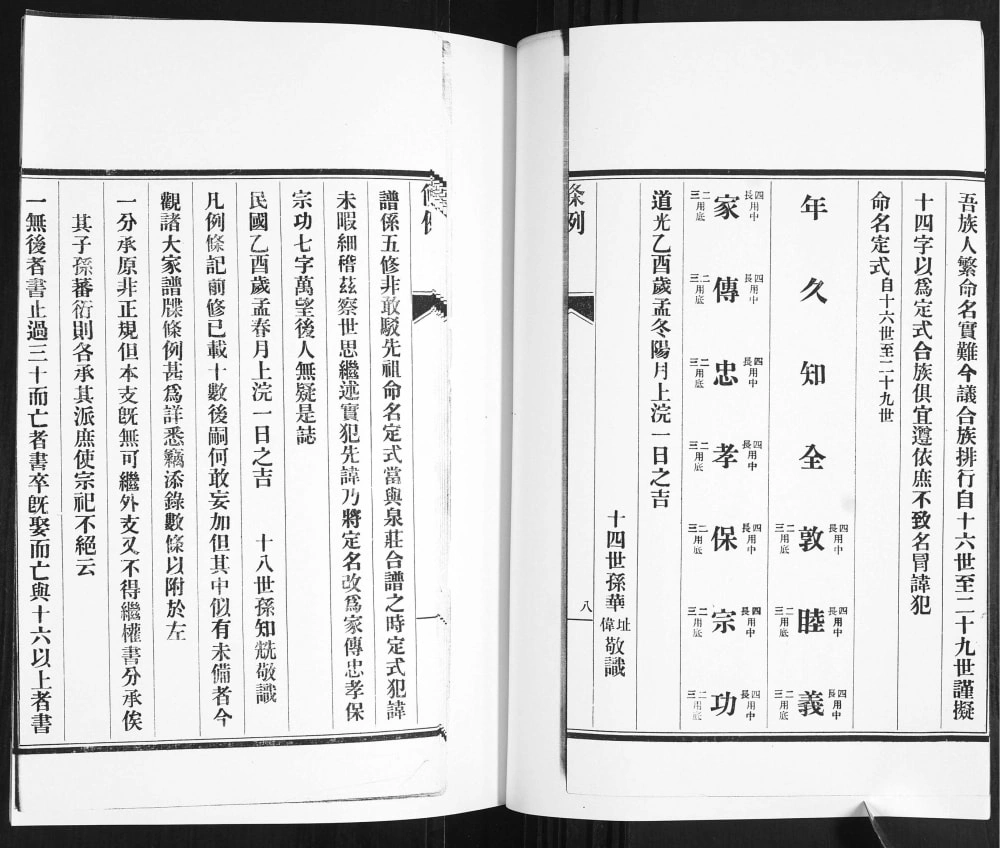 吾族人繁命名實難今議合族排行自十六世至二十九世謹擬
十四字以爲定式合族俱宜遵依庶不致名冒諱犯
命名定式自十六世至二十九世
年久知全敦四長用中二三用底睦四長用中二三用底義四長用中二三用底
家四長用中二三用底傳四長用中二三用底忠四長用中二三用底孝四長用中二三用底保四長用中二三用底宗四長用中二三用底功四長用中二三用底
道光乙酉歲孟冬陽月上浣一日之吉
十四世孫華址偉敬識
條例
八
條例
譜係五修非敢駁先祖命名定式當與泉莊合譜之時定式犯諱
未暇細稽茲察世思繼述實犯先諱乃將定名改爲家傳忠孝保
宗功七字萬望後人無疑是誌
民國乙酉歲孟春月上浣一日之吉 十八世孫知兟敬識
凡例條記前修已載十數後嗣何敢妄加但其中似有未備者今
觀諸大家譜牒條例甚爲詳悉竊添錄數條以附於左
一分承原非正規但本支旣無可繼外支又不得繼權書分承俟
其子孫蕃衍則各承其派庶使宗祀不絕云
一無後者書止過三十而亡者書卒旣娶而亡與十六以上者書